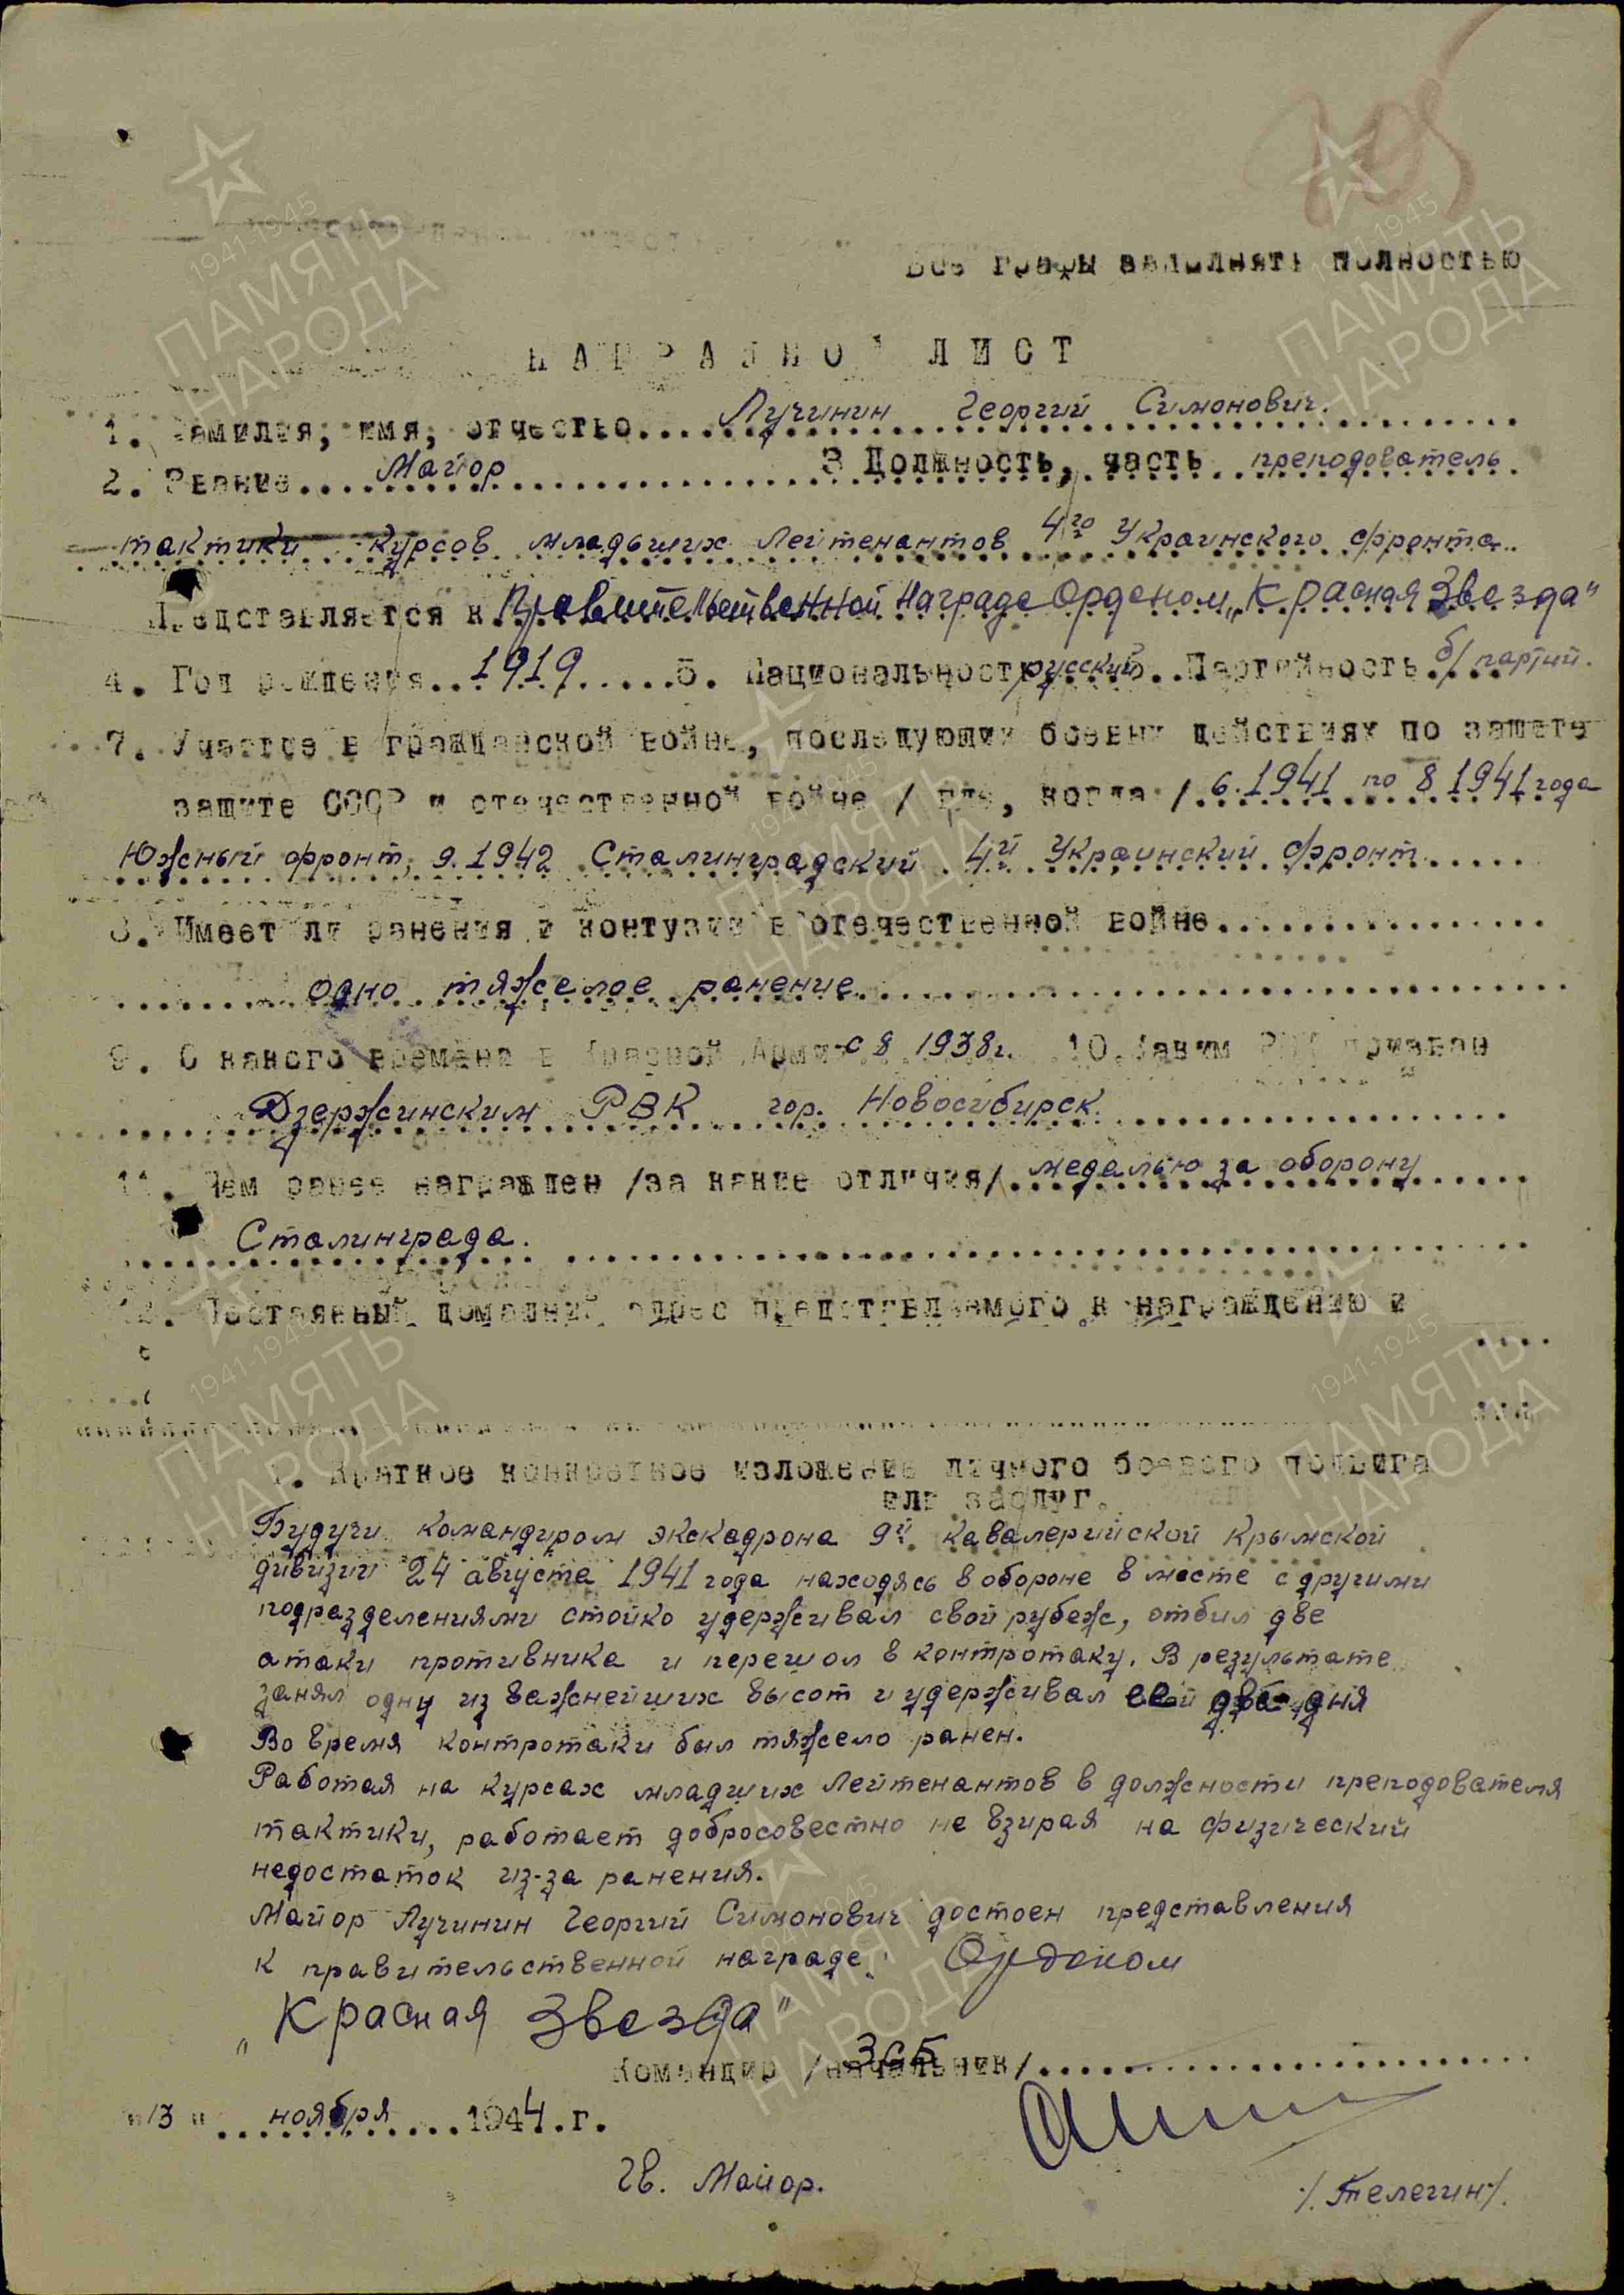 Все графы заполнять полностью
НАГРАДНОЙ ЛИСТ
1. Фамилия, имя, отчество.... Лучинин Георгий Симонович.
2. Звание.... Майор 3 Должность, часть преподователь
тактики курсов младших лейтенантов 4го Украинского фронта..
Представляется к Правительственной Награде Орденом „Красная Звезда"
4. Год рождения.. 1919 .....5. Национальность русский 6. Партийность б/партий.
7. Участие в гражданской войне, последующих боевых действиях по защите
защите СССР и отечественной войне /где, когда/. 6.1941 по 8 1941 года
Южный фронт, 9.1942 Сталинградский 4й Украинский фронт.....
8. Имеет ли ранения и контузии в отечественной войне................
одно тяжелое ранение
9. С какого времени в Красной Армии с 8 1938г. 10. Каким РВК призван
Дзержинским РВК гор. Новосибирск.
11. Чем ранее награжден /за какие отличия/. медалью за оборону
Сталинграда.
12. Постоянный домашний адрес представляемого к награждению и
1. Краткое конкретное изложение личного боевого подвига
или заслуг.
Будучи командиром экскадрона 9й кавалерийской Крымской
дивизии 24 августа 1941 года находясь в обороне в месте с другими
подразделениями стойко удерживал свой рубеж, отбил две
атаки противника и перешол в контротаку. В результате
занял одну из важнейших высот и удерживал два дня
Во время контротаки был тяжело ранен.
Работая на курсах младших лейтенантов в должности преподователя
тактики, работает добросовестно не взирая на физический
недостаток из-за ранения.
Майор Лучинин Георгий Симонович достоен представления
к правительственной награде: Орденом
„Красная Звезда"
Командир /начальник/
"13" ноября 1944.г.
Гв. Майор.
/.Телегин/.
1941-1945
ПАМЯТЬ
НАРОДА